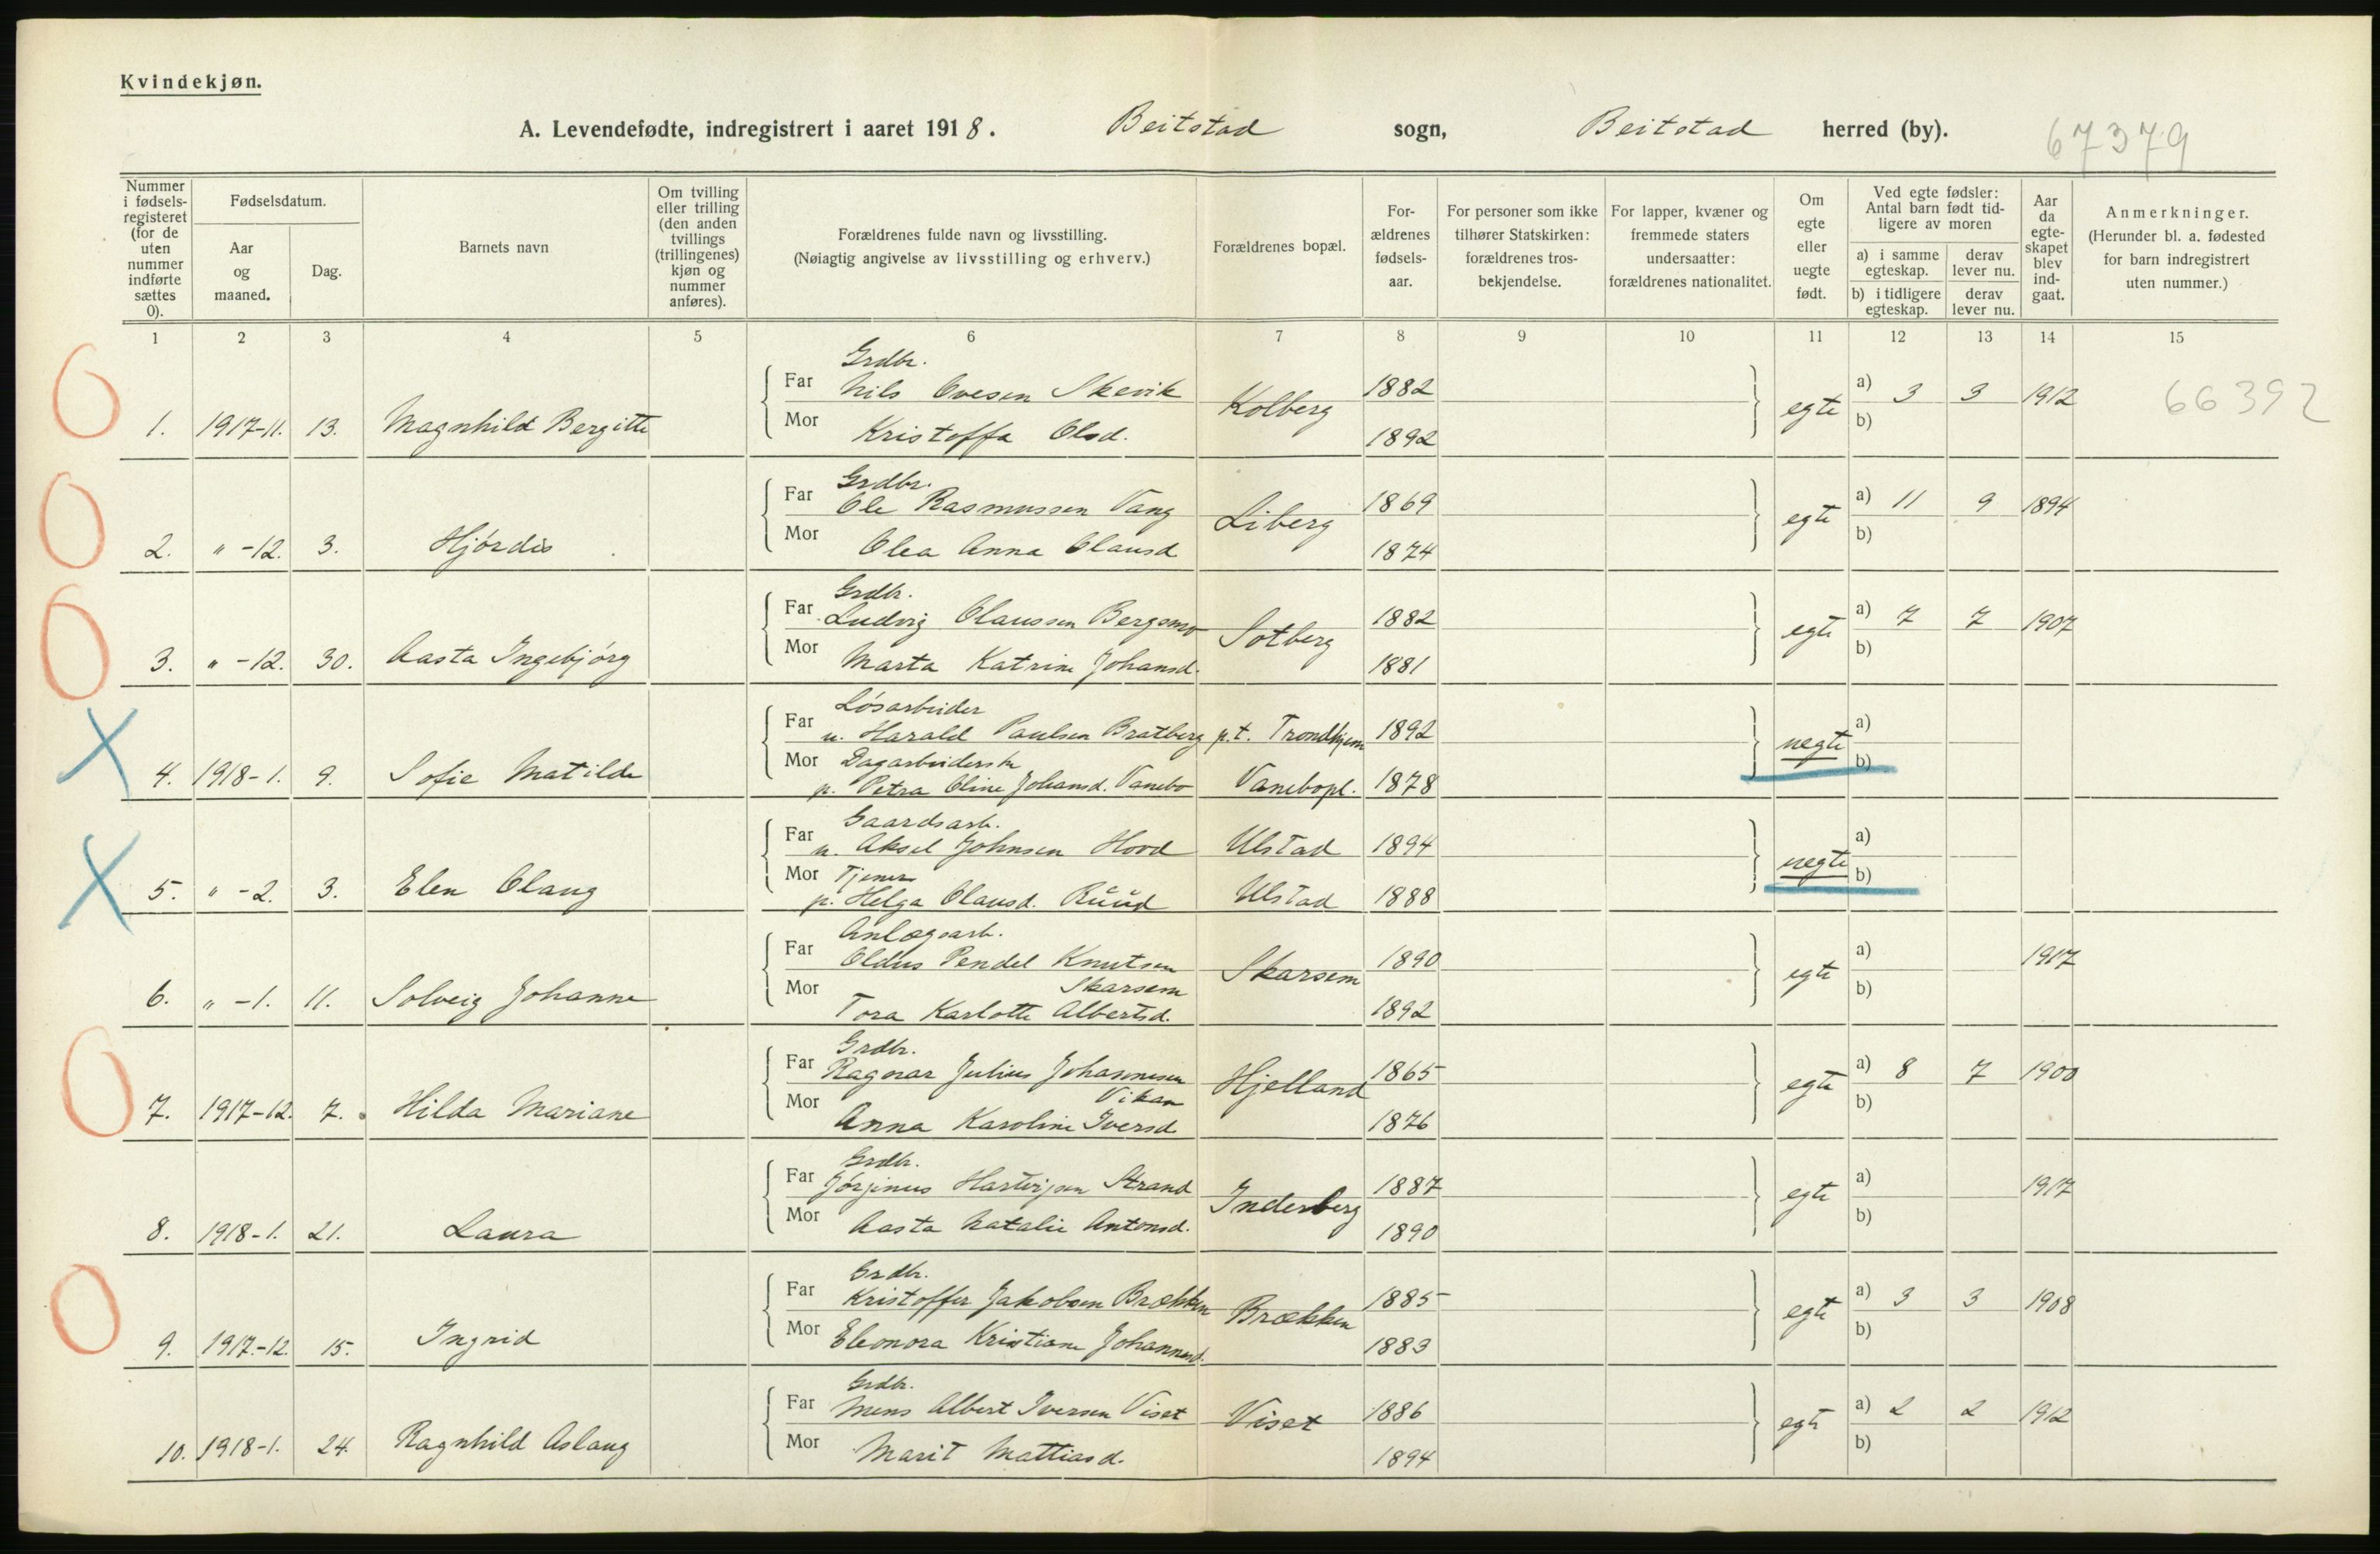 Kvindekjøn.
A. Levendefødte, indregistrert i aaret 1918. Beitstad sogn, Beitstad herred (by). 67379
Nummer i fødselsregisteret (for de uten nummer indførte sættes 0).
Fødselsdatum.
Aar og maaned.
Dag.
Barnets navn
Om tvilling eller trilling (den anden tvillings (trillingenes) kjøn og nummer anføres).
Forældrenes fulde navn og livsstilling.
(Nøiagtig angivelse av livsstilling og erhverv.)
Forældrenes bopæl.
Forældrenes fødselsaar.
For personer som ikke tilhører Statskirken: forældrenes trosbekjendelse.
For lapper, kvæner og fremmede staters undersaatter: forældrenes nationalitet.
Om egte eller uegte født.
Ved egte fødsler: Antal barn født tidligere av moren
a) i samme egteskap. derav lever nu.
b) i tidligere egteskap. derav lever nu.
Aar da egteskapet blev indgaat.
Anmerkninger.
(Herunder bl. a. fødested for barn indregistrert uten nummer.)
1 2 3 4 5 6 7 8 9 10 11 12 13 14 15
Grdbr.
Far Nils Ovesen Skevik Kolberg 1882 egte a) 3 3 1912 66392
1. 1917-11. 13. Magnhild Bergitte
Mor Kristoffa Olsd. 1892 b)
Grdbr.
Far Ole Rasmussen Vang Liberg 1869 egte a) 11 9 1894
2. " -12. 3. Hjørdis
Mor Olea Anna Olausd 1874 b)
Grdbr.
Far Ludvig Olaussen Bergsmo Sotberg 1882 egte a) 7 7 1907
3. " -12. 30. Aasta Ingebjørg
Mor Marta Katrine Johansd. 1881 b)
Løsarbeider
Far u. Harald Paulsen Bratberg p.t. Trondhjem 1892 uegte a)
Mor Dagarbeiderske b)
4. 1918-1. 9. Sofie Matilde p. Petra Oline Johansd. Vanebo Vanebopl. 1878
Gaardsarb.
Far u. Aksel Johnsen Hood Ulstad 1894 uegte a)
Mor Tjener b)
5. " -2. 3. Elen Olaug p. Helga Olausd. Ruud Ulstad 1888
Anlægsarb.
Far Oldus Pendel Knutsen Skarsem 1890 egte a) 1917
Mor Skarsem b)
6. " -1. 11. Solveig Johanne Tora Karlotte Albertsd. 1892
Grdbr.
Far Ragnar Julius Johannesen Hjelland 1865 egte a) 8 7 1900
Mor Vikan b)
7. 1917-12. 7. Hilda Mariane Anna Karoline Iversd. 1876
Grdbr.
Far Jørginus Hartvigsen Strand Inderberg 1887 egte a) 1917
8. 1918-1. 21. Laura
Mor Aasta Natalie Antonsd. 1890 b)
Grdbr.
Far Kristoffer Jakobsen Brækken Brækken 1885 egte a) 3 3 1908
9. 1917.-12. 15. Ingrid
Mor Eleonora Kristiane Johannesd. 1883 b)
Grdbr.
Far Mens Albert Iversen Viset Viset 1886 egte a) 2 2 1912
10. 1918-1. 24. Ragnhild Aslaug
Mor Marit Mattiasd. 1894 b)